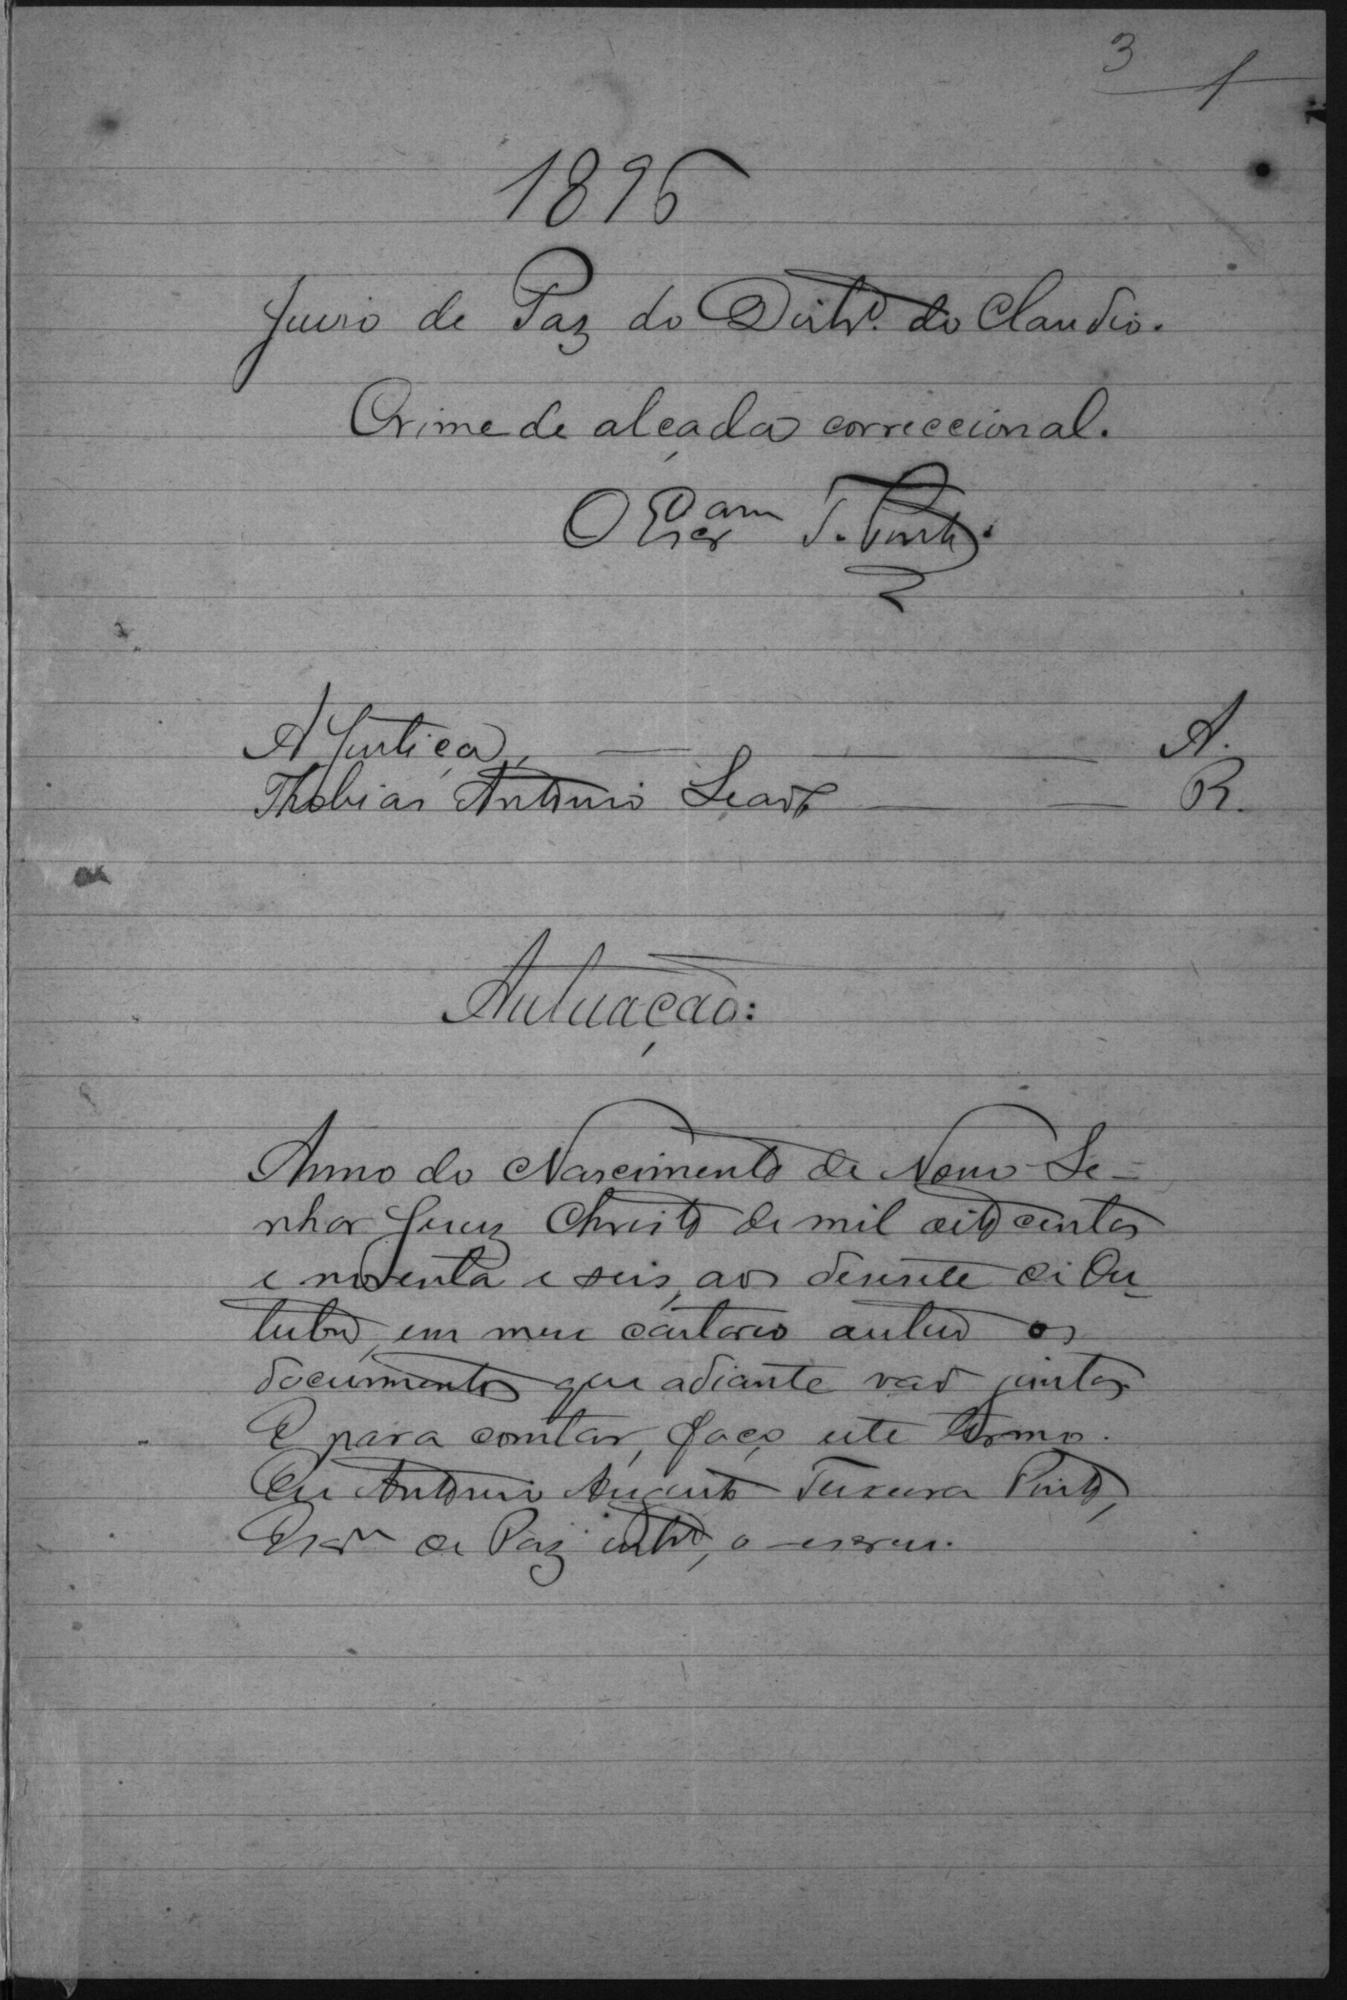 3 1
1896
Juizo de Paz do Distrº. do Claudio.
Crime de alçada correccional.
O Escram T. Pinto.
A Justiça, A.
Thobias Antonio R.
Autuação:
Anno do Nascimento de Nosso Se-
nhor Jesuz Christo de mil oitocentos
e noventa e seis, aos desesete de Ou-
tubro, em meu cartorio autuo os
documentos que adiante vão juntos
E para constar, faço este termo.
Eu Antonio Augusto Teixeira Pinto,
Escram de Paz o escrevi.